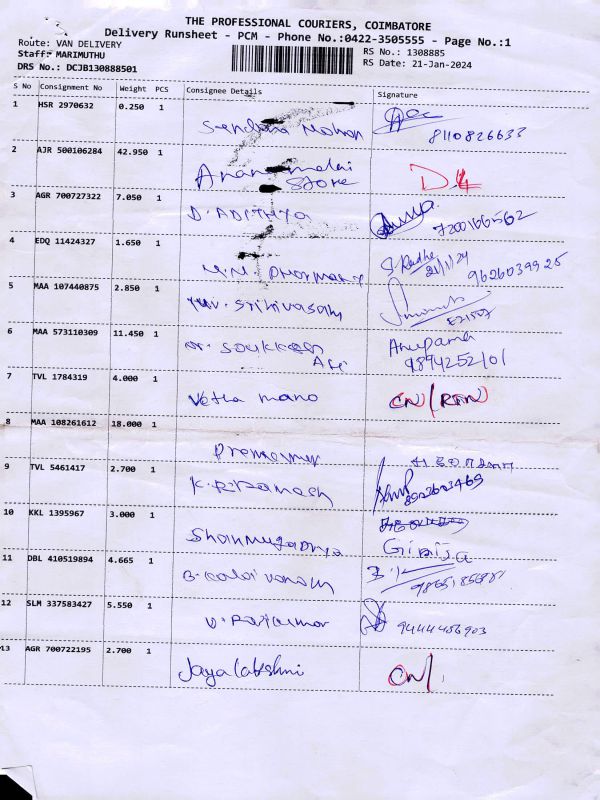 THE PROFESSIONAL COURIERS, COIMBATORE
Delivery Runsheet - PCM - Phone No.:0422-3505555 - Page No.:1
Route: VAN DELIVERY
Staff: MARIMUTHU
DRS No.: DCJB130888501
RS No.: 1308885
RS Date: 21-Jan-2024
S No Consignment No Weight PCS Consignee Details Signature
1 HSR 2970632 0.250 1
Mohan 8110826633
2 AJR 500106284 42.950 1
Annamalai
Store
3 AGR 700727322 7.050 1
D. ADITHYA 7200166562
4 EDQ 11424327 1.650 1
S. Radhe
21/1/24
9626039925
5 MAA 107440875 2.850 1
srinivasan
6 MAA 573110309 11.450 1
Anupama
9894252101
7 TVL 1784319 4.000 1
Vetha mano CN/(RTN)
8 MAA 108261612 18.000 1
9 TVL 5461417 2.700 1
K.R. Ramesh 8902603469
10 KKL 1395967 3.000 1
Shanmugapriya Girija
11 DBL 410519894 4.665 1
12 SLM 337583427 5.550 1
V. Rajkumar 9444456903
13 AGR 700722195 2.700 1
Jayalakshmi CN/.